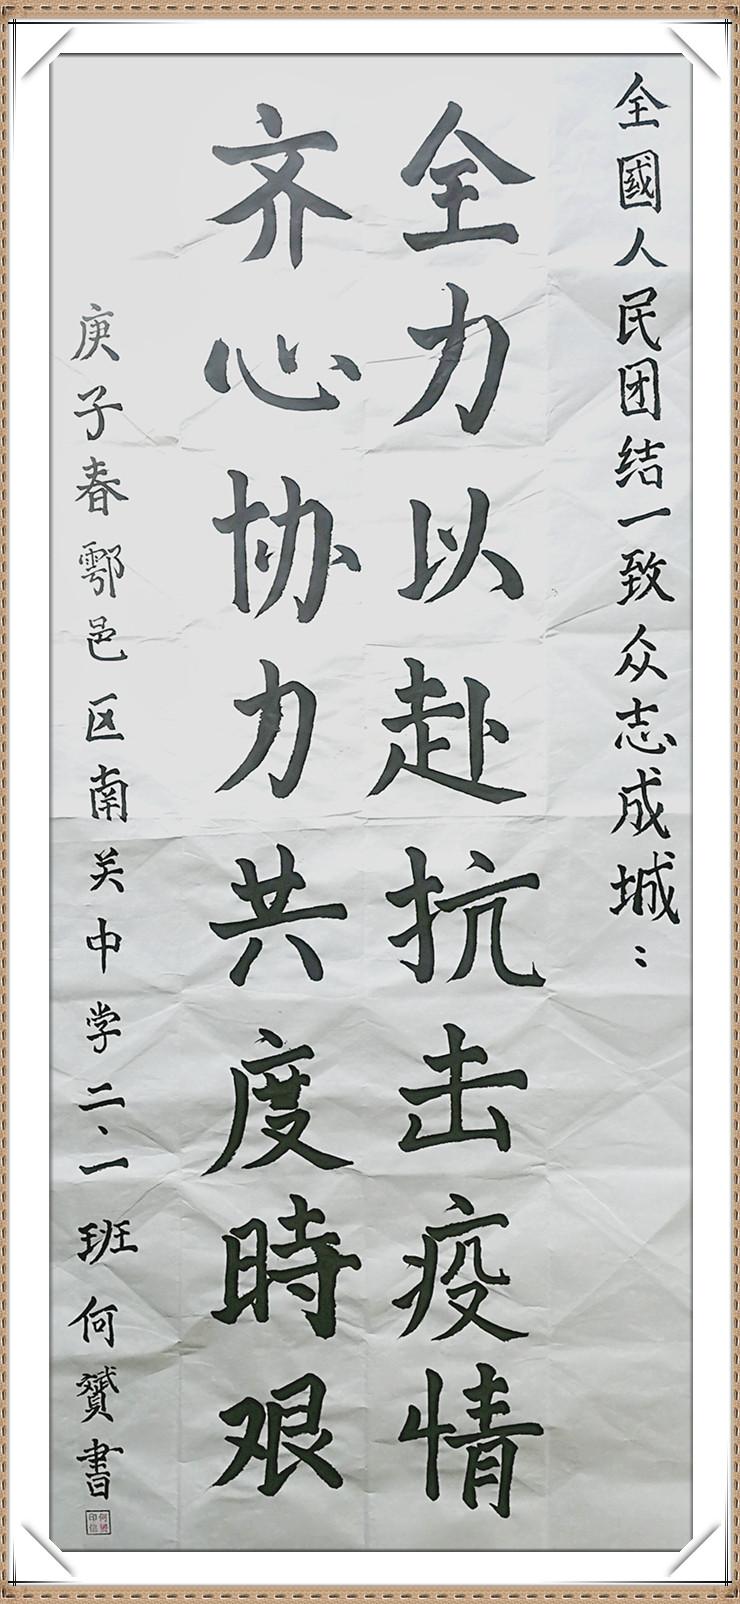 全國人民团结一致众志成城：
全力以赴抗击疫情
齐心协力共度時艰
庚子春鄠邑区南关中学二、一班何赟書